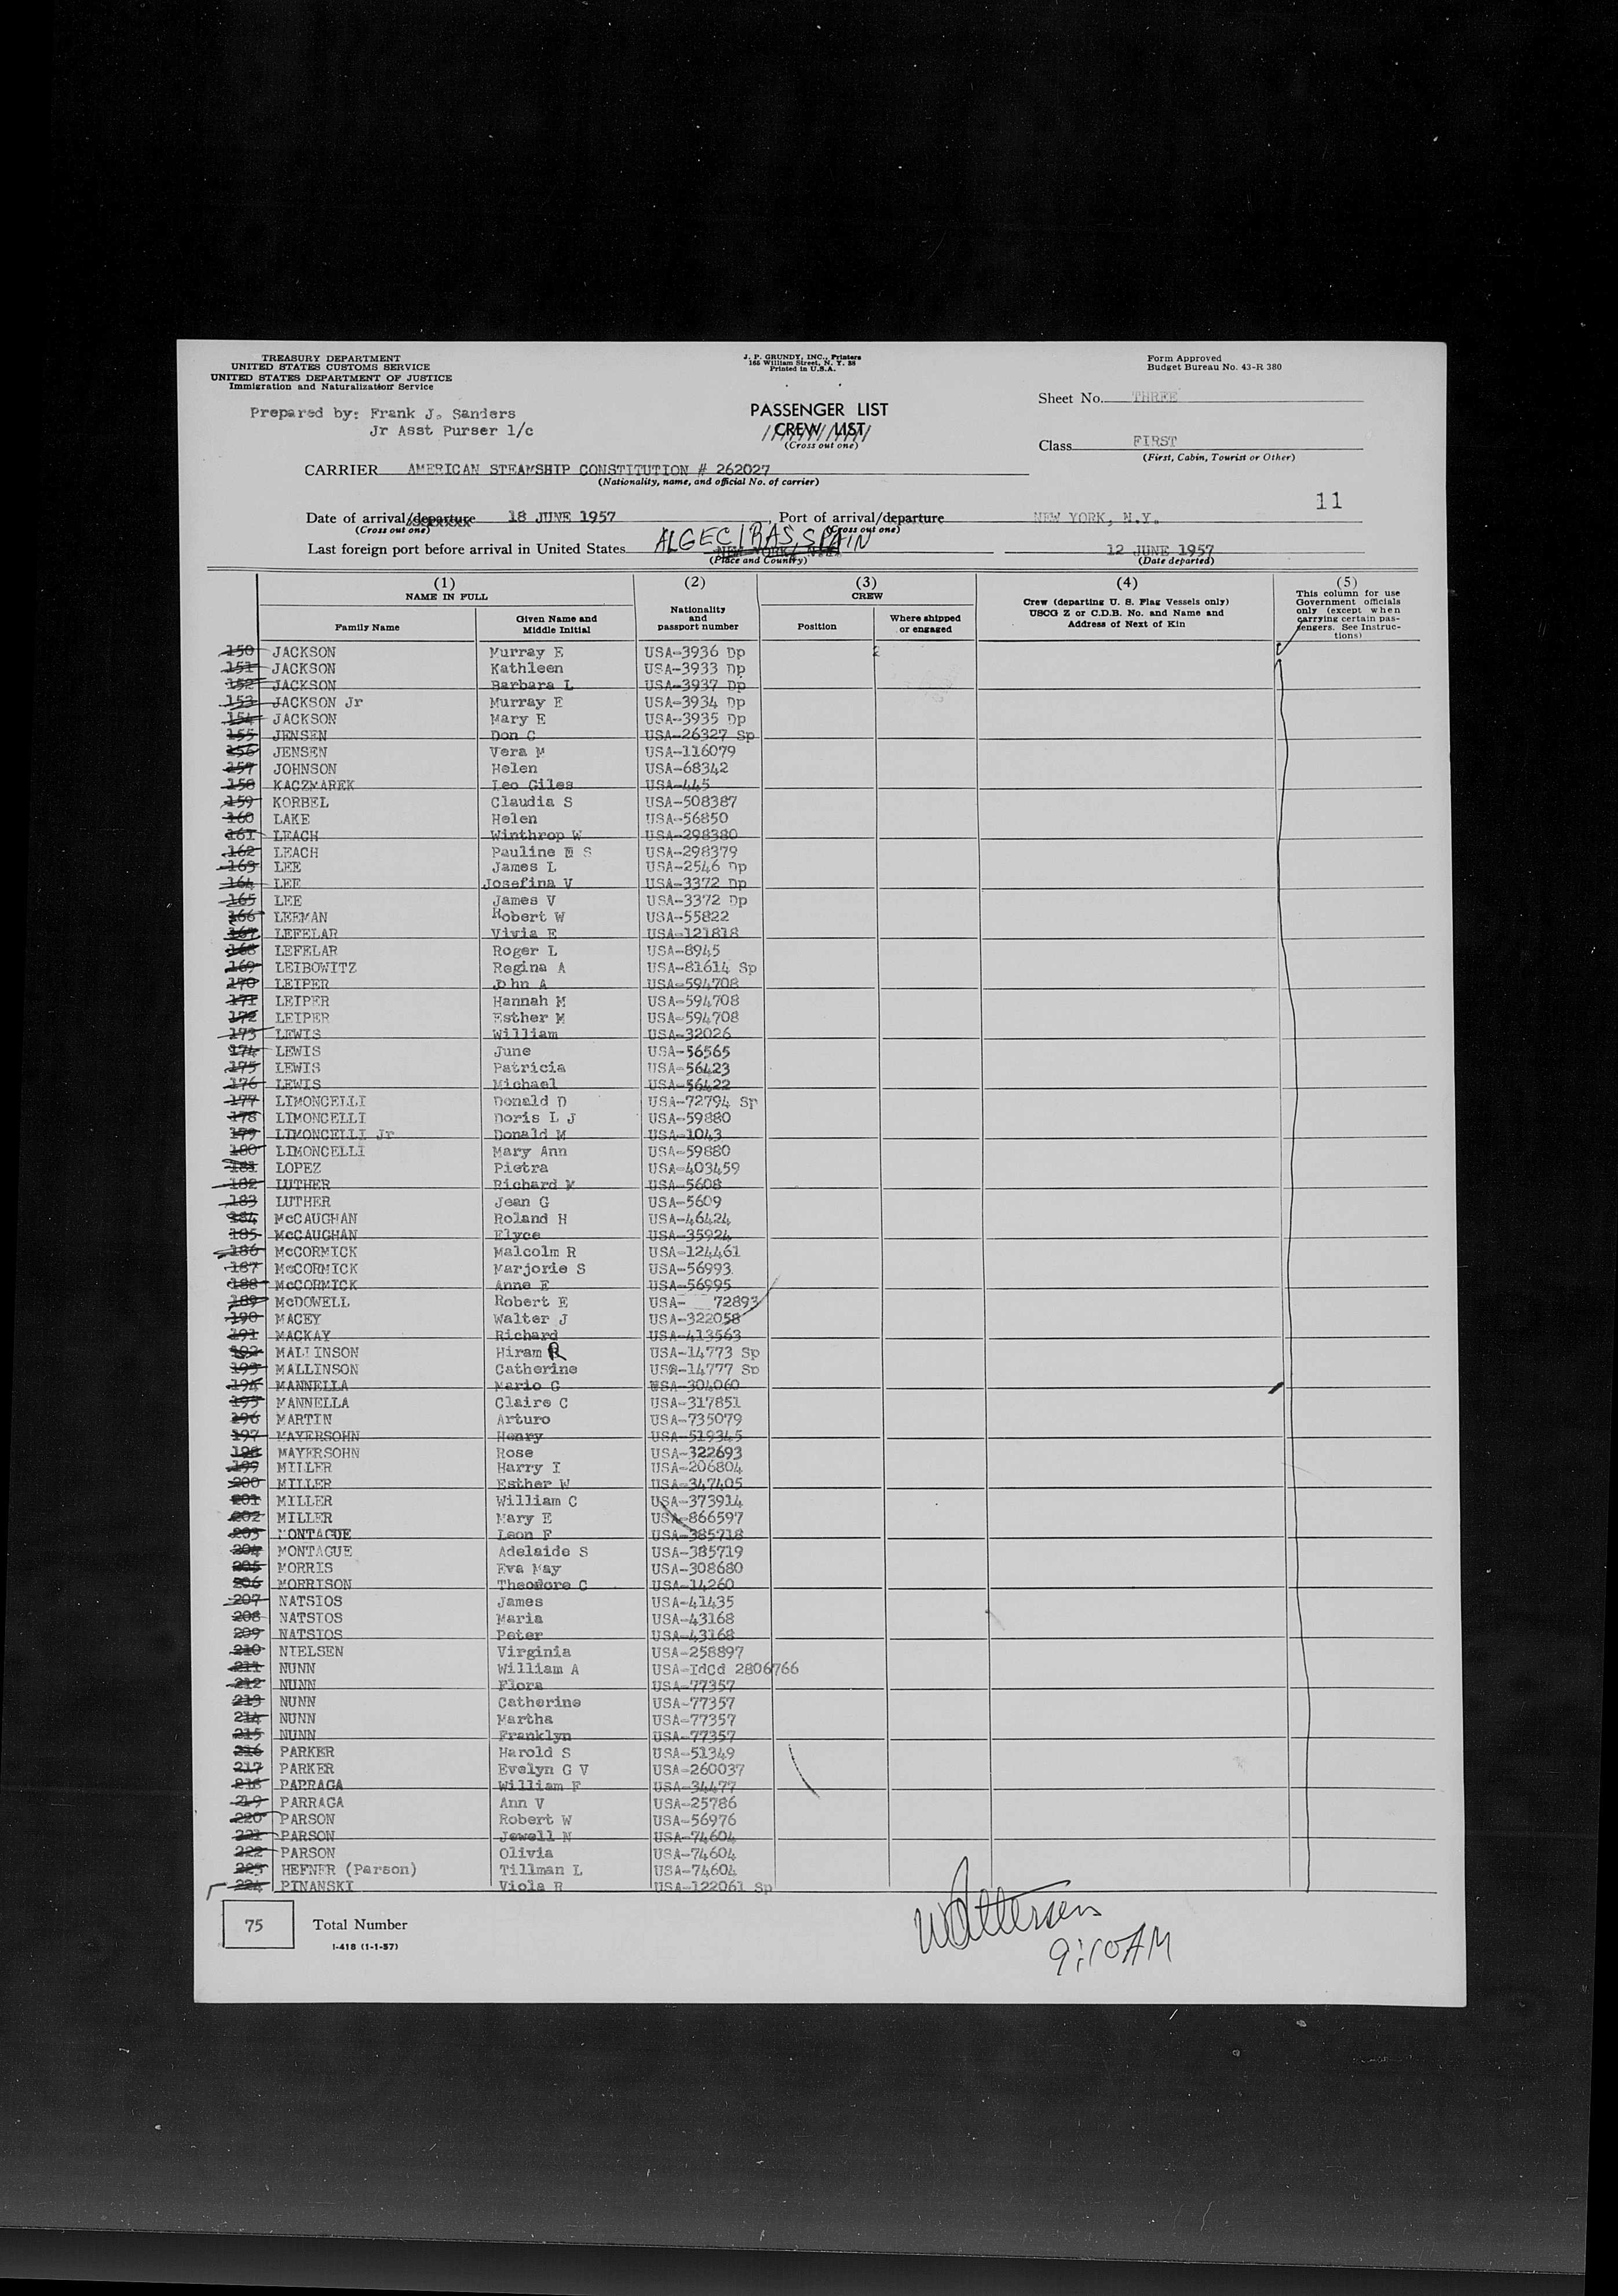 TREASURY DEPARTMENT
UNITED STATES CUSTOMS SERVICE
UNITED STATES DEPARTMENT OF JUSTICE
Immigration and Naturalization Service
J. P. GRUNDY, INC., Printers
165 William Street, N. Y. 38
Printed in U.S.A.
Form Approved
Budget Bureau No. 43-R 380
Prepared by: Frank J. Sanders
Jr Asst Purser 1/c
PASSENGER LIST
CREW LIST
(Cross out one)
Sheet No. THREE
Class FIRST
(First, Cabin, Tourist or Other)
CARRIER AMERICAN STEAMSHIP CONSTITUTION # 262027
(Nationality, name, and official No. of carrier)
11
Date of arrival/departure 18 JUNE 1957, Port of arrival/departure NEW YORK, N.Y.
(Cross out one) (Cross out one)
Last foreign port before arrival in United States ALGECIRAS, SPAIN NEW YORK, N.Y. 12 JUNE 1957
(Place and Country) (Date departed)
(1) (2) (3) (4) (5)
NAME IN FULL
Family Name
Given Name and Middle Initial
Nationality and passport number
CREW
Position
Where shipped or engaged
Crew (departing U. S. Flag Vessels only)
USCG Z or C.D.B. No. and Name and
Address of Next of Kin
This column for use
Government officials
only (except when
carrying certain pas-
sengers. See Instruc-
tions)
150 JACKSON Murray E USA-3936 Dp
151 JACKSON Kathleen USA-3933 Dp
152 JACKSON Barbara L USA-3937 Dp
153 JACKSON Jr Murray E USA-3934 Dp
154 JACKSON Mary E USA-3935 Dp
155 JENSEN Don C USA-26327 Sp
156 JENSEN Vera M USA-116079
157 JOHNSON Helen USA-68342
158 KACZMAREK Leo Giles USA-445
159 KORBEL Claudia S USA-508387
160 LAKE Helen USA-56850
161 LEACH Winthrop W USA-298380
162 LEACH Pauline S USA-298379
163 LEE James L USA-2546 Dp
164 LEE Josefina V USA-3372 Dp
165 LEE James V USA-3372 Dp
166 LEEMAN Robert W USA-55822
167 LEFELAR Vivia E USA-121818
168 LEFELAR Roger L USA-8945
169 LEIBOWITZ Regina A USA-81614 Sp
170 LEIPER John A USA-594708
171 LEIPER Hannah M USA-594708
172 LEIPER Esther M USA-594708
173 LEWIS William USA-32026
174 LEWIS June USA-56565
175 LEWIS Patricia USA-56423
176 LEWIS Michael USA-56422
177 LIMONCELLI Donald D USA-72794 Sp
178 LIMONCELLI Doris L J USA-59880
179 LIMONCELLI Jr Donald M USA-1043
180 LIMONCELLI Mary Ann USA-59880
181 LOPEZ Pietra USA-403459
182 LUTHER Richard M USA-5608
183 LUTHER Jean G USA-5609
184 McCAUGHAN Roland H USA-46424
185 McCAUGHAN Elyce USA-35924
186 McCORMICK Malcolm R USA-124461
187 McCORMICK Marjorie S USA-56993
188 McCORMICK Anne E USA-56995
189 McDOWELL Robert E USA- 72893
190 MACEY Walter J USA-322058
191 MACKAY Richard USA-413563
192 MALLINSON Hiram R USA-14773 Sp
193 MALLINSON Catherine USA-14777 Sp
194 MANNELLA Mario G USA-304060
195 MANNELLA Claire C USA-317851
196 MARTIN Arturo USA-735079
197 MAYERSOHN Henry USA-519345
198 MAYERSOHN Rose USA-322693
199 MILLER Harry I USA-206804
200 MILLER Esther W USA-347405
201 MILLER William C USA-373914
202 MILLER Mary E USA-866597
203 MONTAGUE Leon F USA-385718
204 MONTAGUE Adelaide S USA-385719
205 MORRIS Eva May USA-308680
206 MORRISON Theodore C USA-14260
207 NATSIOS James USA-41435
208 NATSIOS Maria USA-43168
209 NATSIOS Peter USA-43168
210 NIELSEN Virginia USA-258897
211 NUNN William A USA-IdCd 2806766
212 NUNN Flora USA-77357
213 NUNN Catherine USA-77357
214 NUNN Martha USA-77357
215 NUNN Franklyn USA-77357
216 PARKER Harold S USA-51349
217 PARKER Evelyn G V USA-260037
218 PARRAGA William F USA-34477
219 PARRAGA Ann V USA-25786
220 PARSON Robert W USA-56976
221 PARSON Jewell N USA-74604
222 PARSON Olivia USA-74604
223 HEFNER (Parson) Tillman L USA-74604
224 PINANSKI Viola R USA-122061 Sp
75 Total Number
I-418 (1-1-57)
9:10 AM